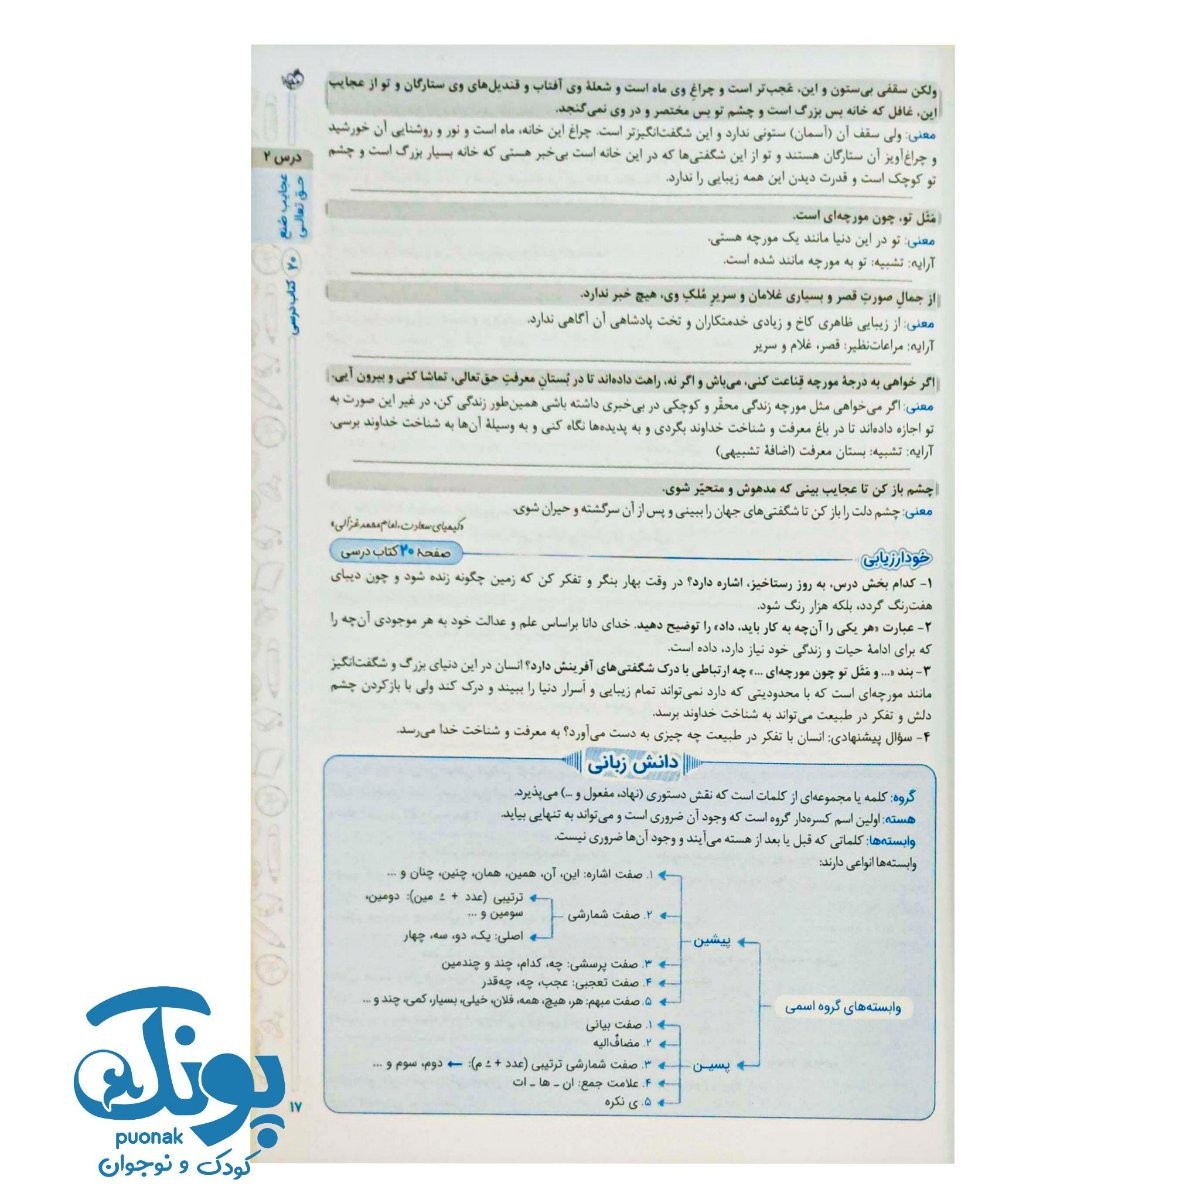 ولکن سقفی بی‌ستون و این، عَجب‌تر است و چراغِ وی ماه است و شعلهٔ وی آفتاب و قندیل‌های وی ستارگان و تو از عجایب
این، غافل که خانه بس بزرگ است و چشم تو بس مختصر و در وی نمی‌گنجد.
معنی: ولی سقف آن (آسمان) ستونی ندارد و این شگفت‌انگیزتر است. چراغ این خانه، ماه است و نور و روشنایی آن خورشید
و چراغ‌آویز آن ستارگان هستند و تو از این شگفتی‌ها که در این خانه است بی‌خبر هستی که خانه بسیار بزرگ است و چشم
تو کوچک است و قدرت دیدن این همه زیبایی را ندارد.
مَثَل تو، چون مورچه‌ای است.
معنی: تو در این دنیا مانند یک مورچه هستی.
آرایه: تشبیه: تو به مورچه مانند شده است.
از جمالِ صورتِ قصر و بسیاری غلامان و سریرِ مُلکِ وی، هیچ خبر ندارد.
معنی: از زیبایی ظاهری کاخ و زیادی خدمتکاران و تخت پادشاهی آن آگاهی ندارد.
آرایه: مراعات‌نظیر: قصر، غلام و سریر
اگر خواهی به درجهٔ مورچه قِناعت کنی، می‌باش و اگر نه، راهت داده‌اند تا در بُستانِ معرفتِ حق‌تعالی، تماشا کنی و بیرون آیی.
معنی: اگر می‌خواهی مثل مورچه زندگی محقّر و کوچکی در بی‌خبری داشته باشی همین‌طور زندگی کن، در غیر این صورت به
تو اجازه داده‌اند تا در باغ معرفت و شناخت خداوند بگردی و به پدیده‌ها نگاه کنی و به وسیلهٔ آن‌ها به شناخت خداوند برسی.
آرایه: تشبیه: بستان معرفت (اضافهٔ تشبیهی)
چشم باز کن تا عجایب بینی که مدهوش و متحیّر شوی.
معنی: چشم دلت را باز کن تا شگفتی‌های جهان را ببینی و پس از آن سرگشته و حیران شوی.
«کیمیای سعادت، امام محمد غزالی»
خودارزیابی
صفحهٔ ۲۰ کتاب درسی
۱- کدام بخش درس، به روز رستاخیز، اشاره دارد؟ در وقت بهار بنگر و تفکر کن که زمین چگونه زنده شود و چون دیبای
هفت‌رنگ گردد، بلکه هزار رنگ شود.
۲- عبارت «هر یکی را آن‌چه به کار باید، داد» را توضیح دهید. خدای دانا براساس علم و عدالت خود به هر موجودی آن‌چه را
که برای ادامهٔ حیات و زندگی خود نیاز دارد، داده است.
۳- بند «... و مَثَل تو چون مورچه‌ای ...» چه ارتباطی با درک شگفتی‌های آفرینش دارد؟ انسان در این دنیای بزرگ و شگفت‌انگیز
مانند مورچه‌ای است که با محدودیتی که دارد نمی‌تواند تمام زیبایی و اَسرار دنیا را ببیند و درک کند ولی با بازکردن چشم
دلش و تفکر در طبیعت می‌تواند به شناخت خداوند برسد.
۴- سؤال پیشنهادی: انسان با تفکر در طبیعت چه چیزی به دست می‌آورد؟ به معرفت و شناخت خدا می‌رسد.
دانش زبانی
گروه: کلمه یا مجموعه‌ای از کلمات است که نقش دستوری (نهاد، مفعول و ...) می‌پذیرد.
هسته: اولین اسم کسره‌دار گروه است که وجود آن ضروری است و می‌تواند به تنهایی بیاید.
وابسته‌ها: کلماتی که قبل یا بعد از هسته می‌آیند و وجود آن‌ها ضروری نیست.
وابسته‌ها انواعی دارند:
وابسته‌های گروه اسمی
پیشین
۱. صفت اشاره: این، آن، همین، همان، چنین، چنان و ...
۲. صفت شمارشی
ترتیبی (عدد + ُ مین): دومین،
سومین و ...
اصلی: یک، دو، سه، چهار
۳. صفت پرسشی: چه، کدام، چند و چندمین
۴. صفت تعجبی: عجب، چه، چه‌قدر
۵. صفت مبهم: هر، هیچ، همه، فلان، خیلی، بسیار، کمی، چند و ...
پسین
۱. صفت بیانی
۲. مضاف‌الیه
۳. صفت شمارشی ترتیبی (عدد + ُ م): ← دوم، سوم و ...
۴. علامت جمع: ان ـ ها ـ ات
۵. ی نکره
درس ۲
عجایب صُنع
حق تعالی
۲۰
کتاب درسی
۱۷
پونک
puonak
کودک و نوجوان